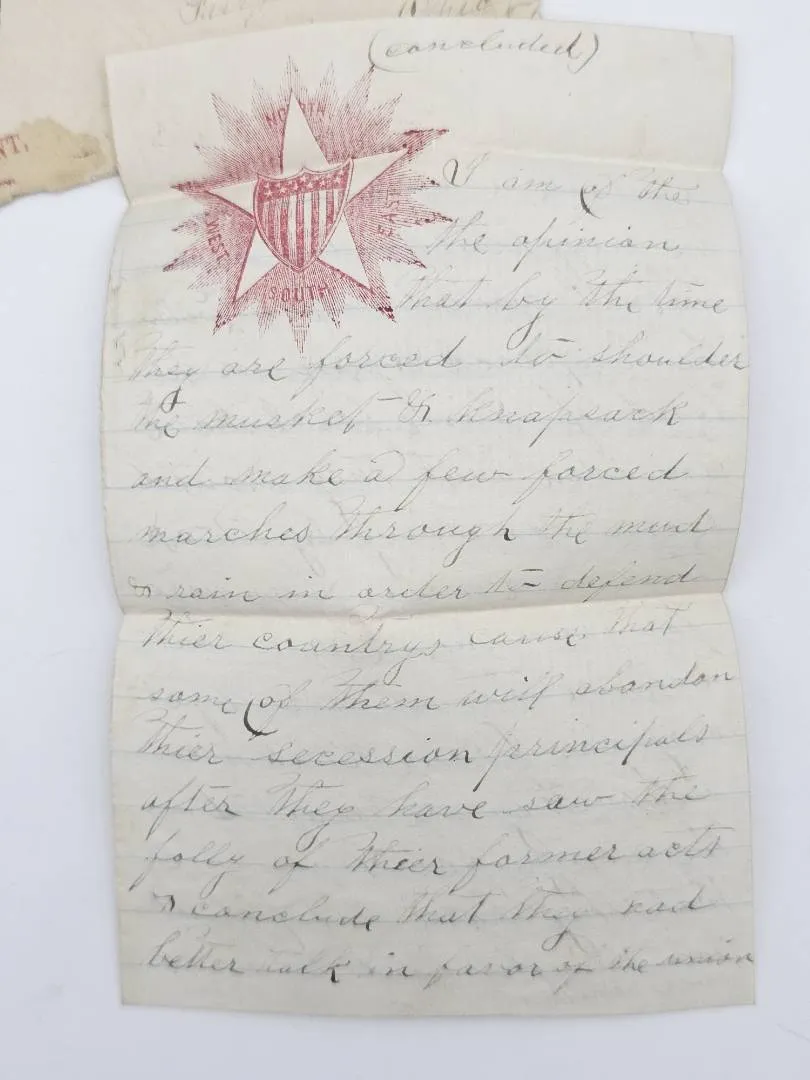 (concluded)
NORTH
WEST
EAST
SOUTH
NT,
I am of the
the opinion
that by the time
they are forced to shoulder
the musket & knapsack
and make a few forced
marches through the mud
& rain in order to defend
thier countrys cause that
some of them will abandon
thier secession principals
after they have saw the
folly of thier former acts
& conclude that they had
better talk in favor of the union